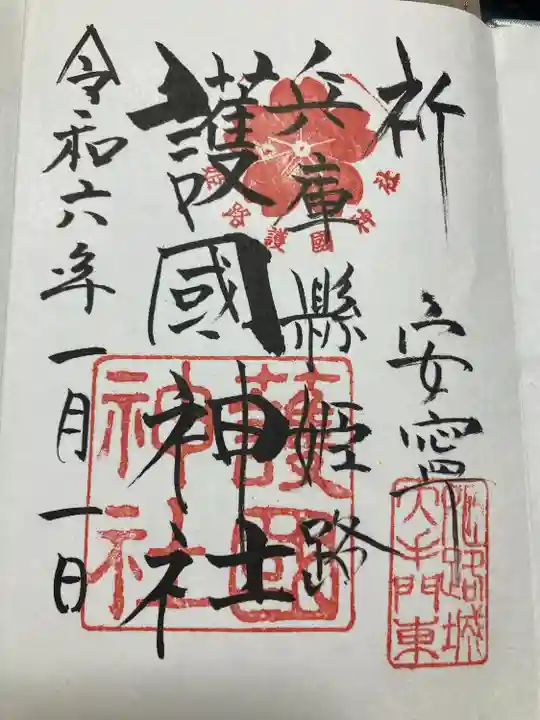 祈 安寧
兵庫縣姫路
護國神社
令和六年一月一日
姫路護國神社
護國神社
姫路城大手門東